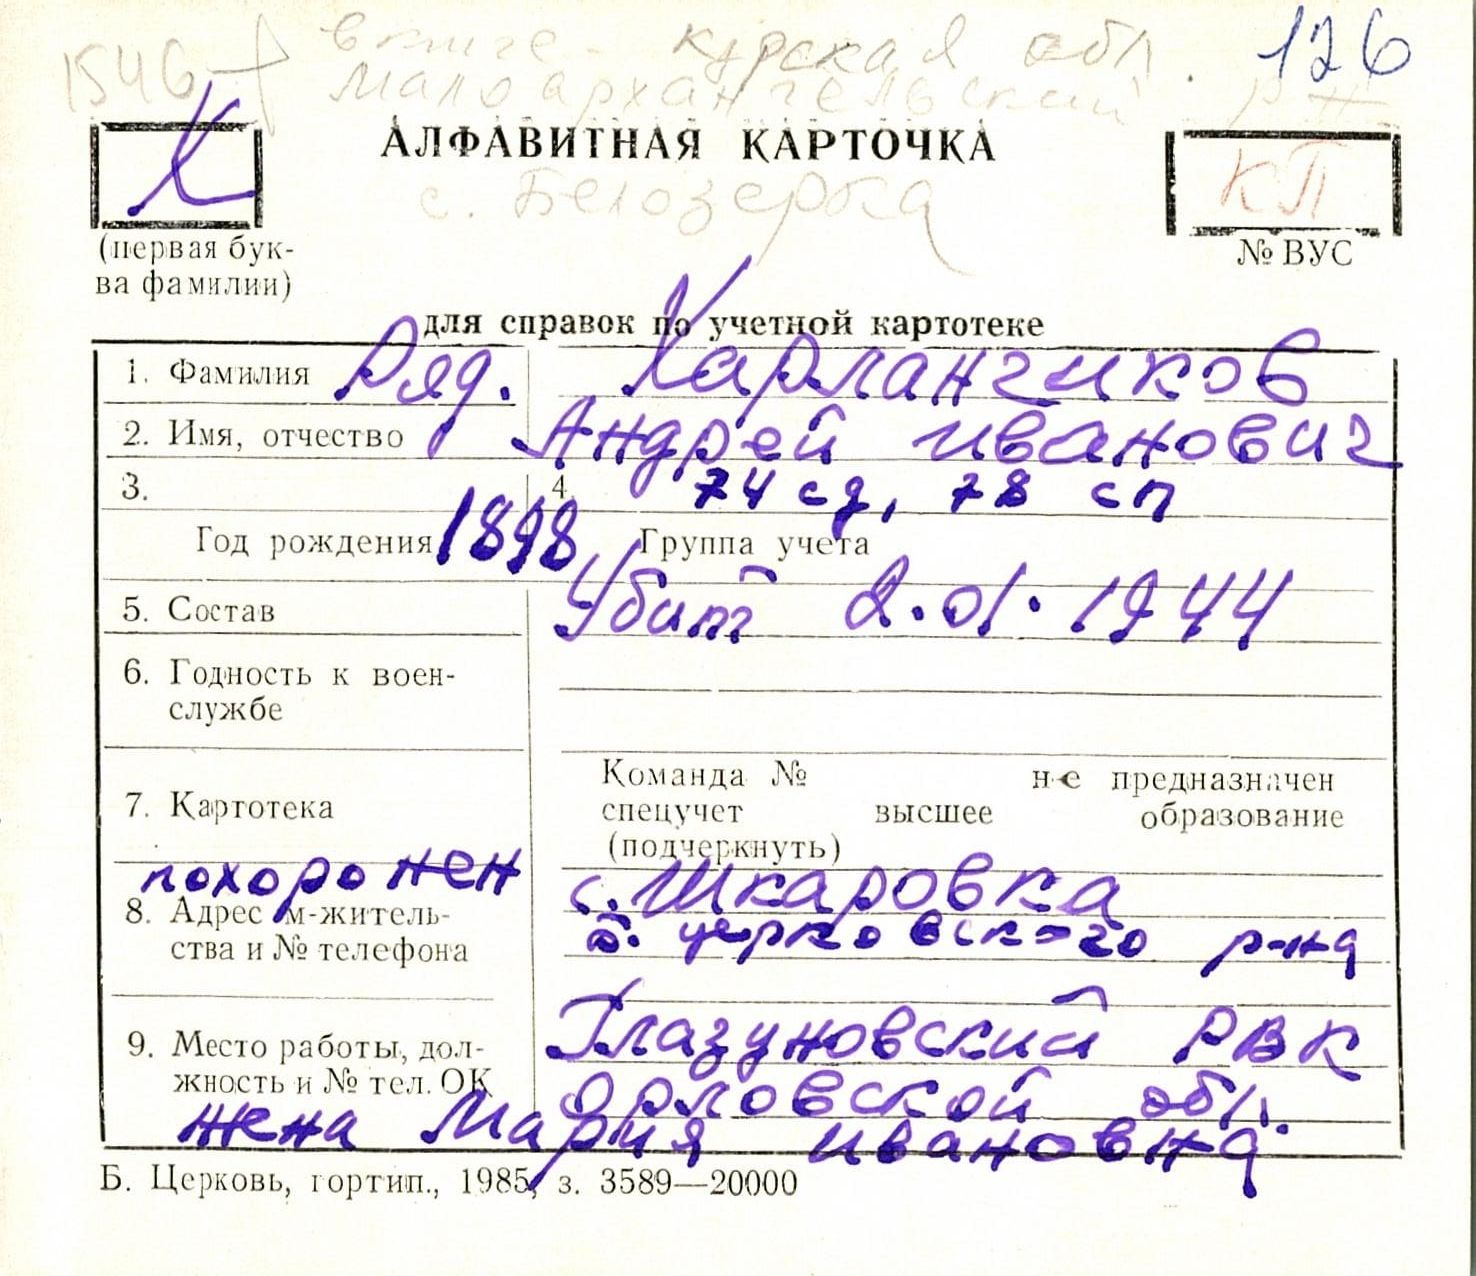 в книге - курская обл. 126
1546 Малоархангельский р-н
АЛФАВИТНАЯ КАРТОЧКА
Х
КП
с. Белозерка
(первая бук-
ва фамилии)
№ ВУС
для справок по учетной картотеке
1. Фамилия Ряд. Харланчиков
2. Имя, отчество Андрей Иванович
3. 4. 74 сд, 78 сп
Год рождения 1898 Группа учета
5. Состав Убит 2.01.1944
6. Годность к воен-
службе
Команда № не предназначен
7. Картотека спецучет высшее образование
(подчеркнуть)
похоронен с. Шкаровка
8. Адрес м-житель-
ства и № телефона б. церковского р-на
Глазуновский РВК
9. Место работы, дол-
жность и № тел. ОК Орловской обл.
жена Мария Ивановна
Б. Церковь, гортип., 1985, з. 3589—20000